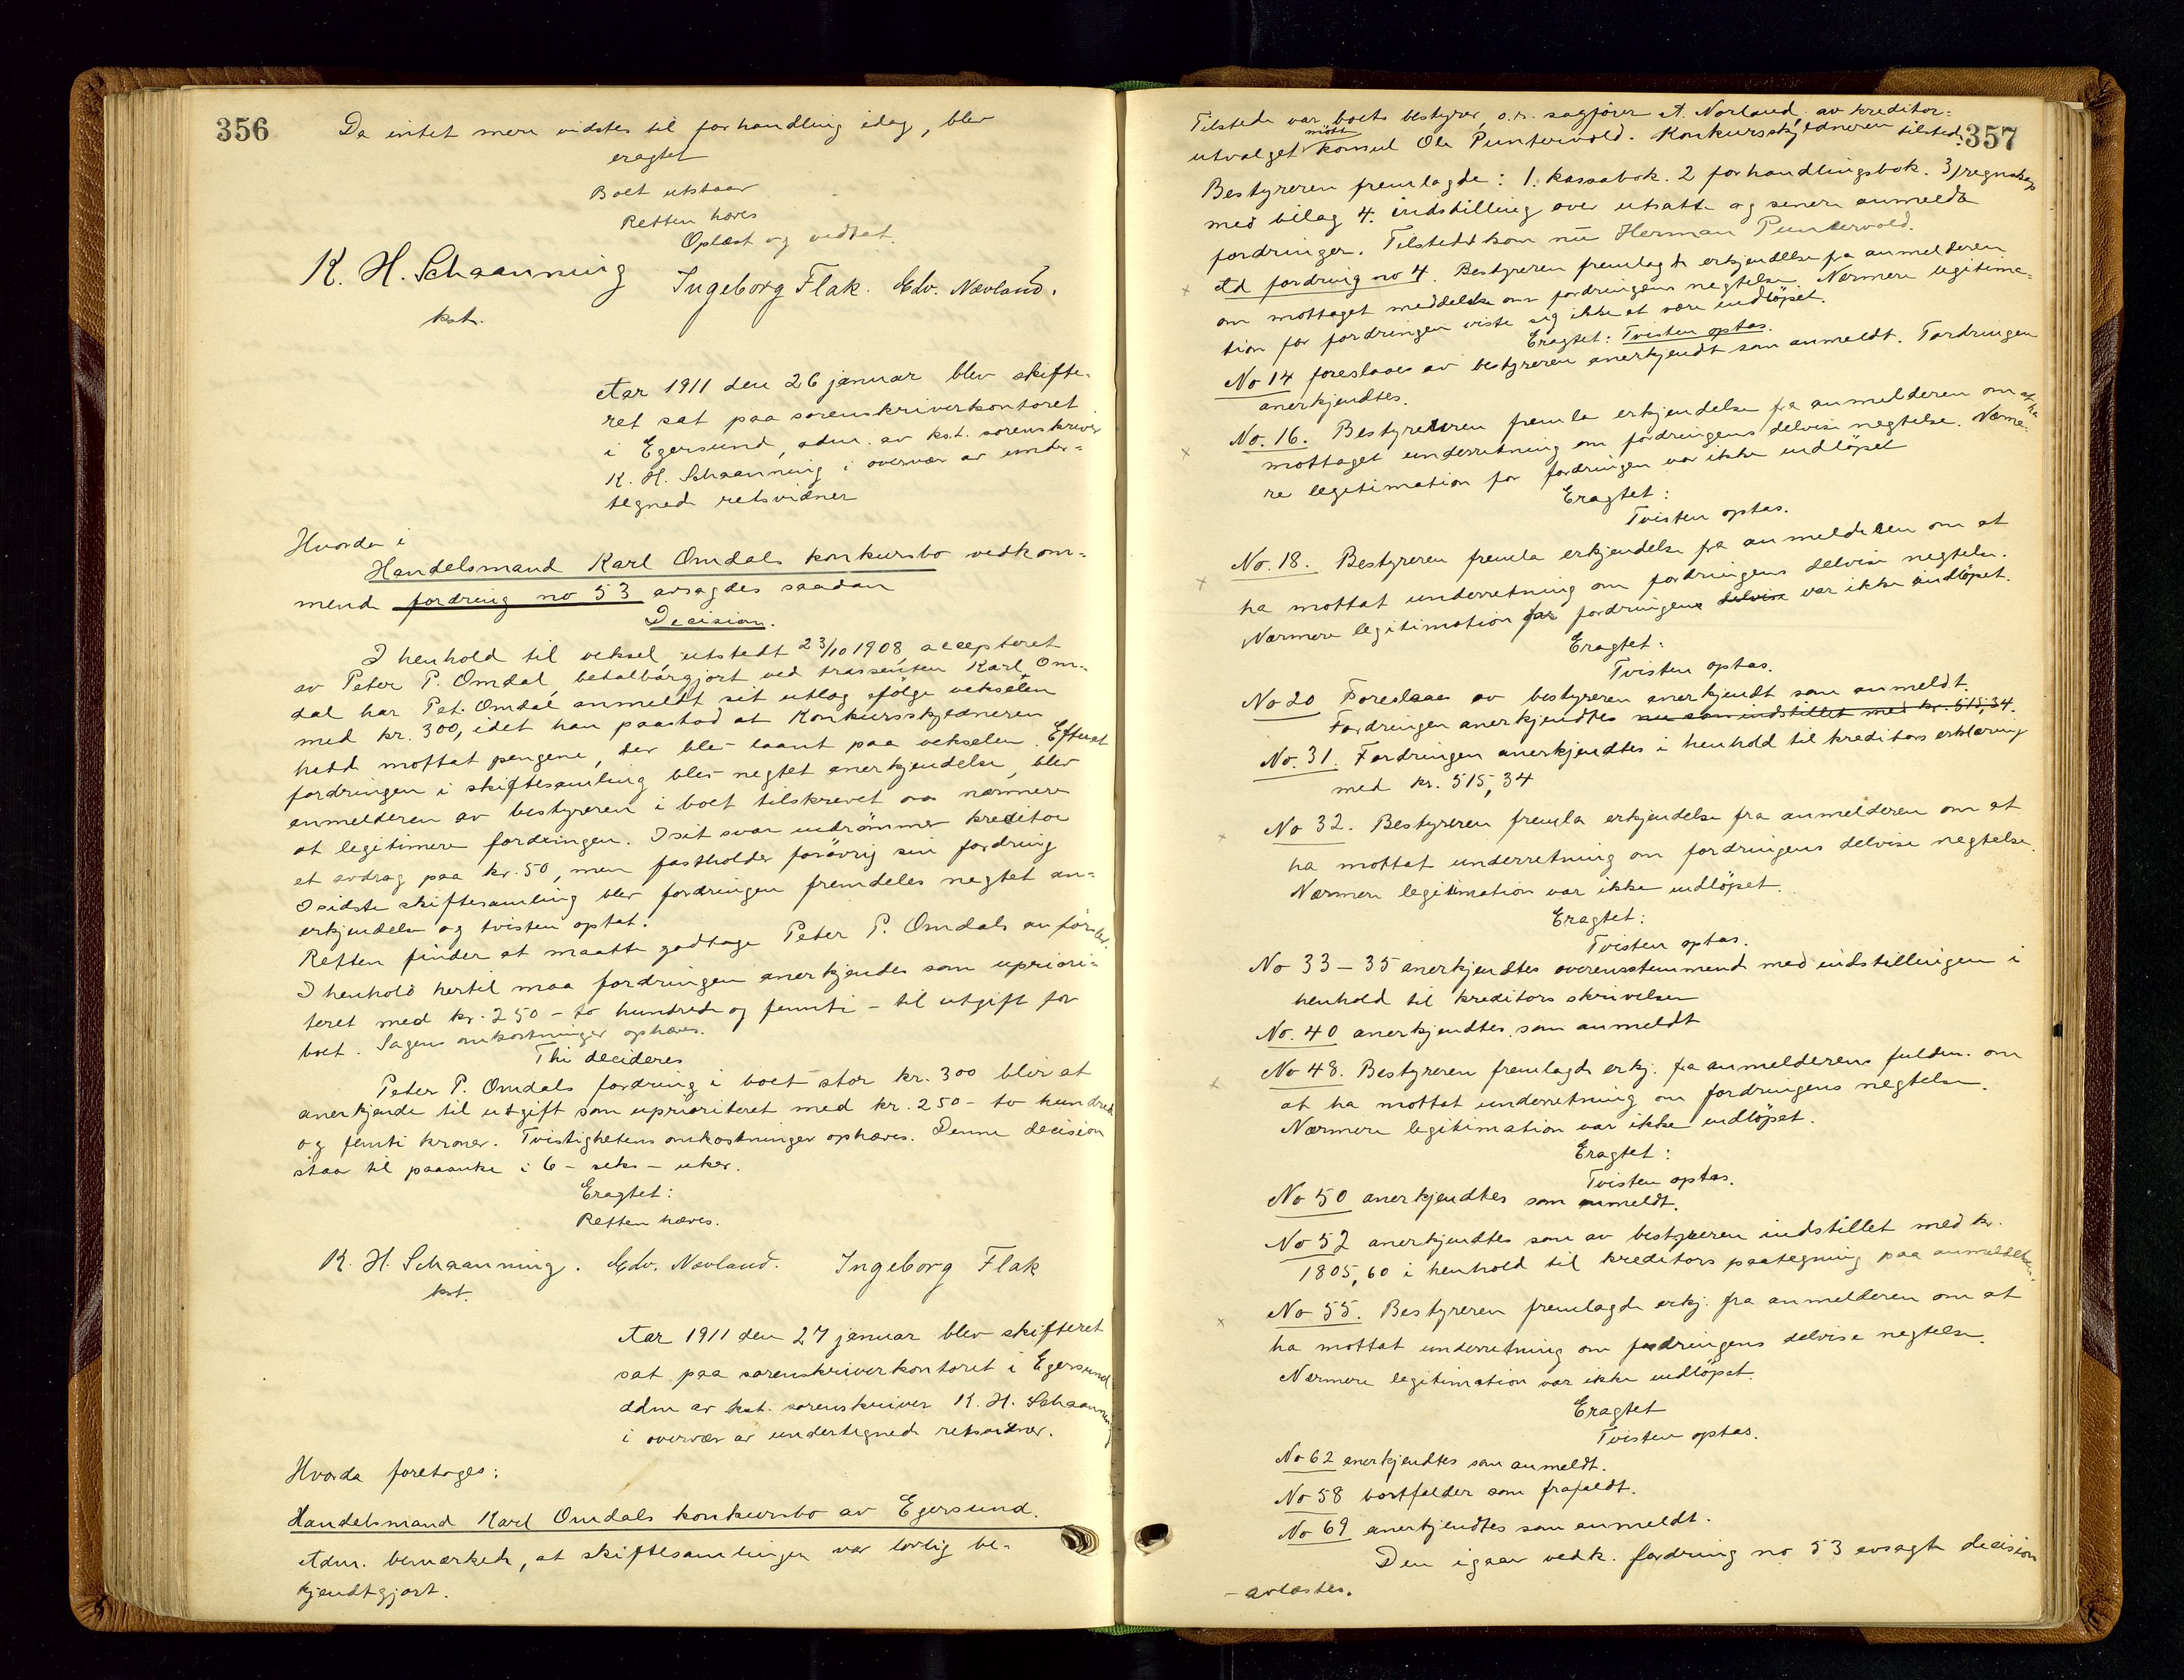 356
Da intet mere vidstes til forhandling idag, blev
eragtet
Boet utstaar
Retten hæves
Oplæst og vedtat.
K. H. Schaanning Ingeborg Flak. Edv. Nævland.
kst.
Aar 1911 den 26 januar blev skifte-
ret sat paa sorenskriverkontoret
i Egersund, adm. av kst. sorenskriver
K. H. Schaanning i overvær av under-
tegnede retsvidner
Hvorda i
Handelsmand Karl Omdals konkursbo vedkom-
mende fordring no 53 avsagdes saadan
Decision.
I henhold til veksel, utstedt 23/10 1908, accepteret
av Peter P. Omdal, betalbargjort ved trassenten Karl Om-
dal har Pet. Omdal anmeldt sit utlæg ifølge vekselen
med kr. 300, idet han paastod at konkursskyldneren
hadde mottat pengene, der blev laant paa vekselen. Efterat
fordringen i skiftesamling blev negtet anerkjendelse, blev
anmelderen av bestyreren i boet tilskrevet om nærmere
at legitimere fordringen. I sit svar indrømmer kreditor
et avdrag paa kr. 50, men fastholder forøvrig sin fordring
I sidste skiftesamling blev fordringen fremdeles negtet an-
erkjendelse og tvisten optat.
Retten finder at maatte godtage Peter P. Omdals anførsler.
I henhold hertil maa fordringen anerkjendes som upriori-
teret med kr. 250 - to hundrede og femti - til utgift for
boet. Sagens omkostninger ophæves.
Thi decideres
Peter P. Omdals fordring i boet stor kr. 300 blir at
anerkjende til utgift som uprioriteret med kr. 250 - to hundrede
og femti kroner. Tvistighetens omkostninger ophæves. Denne decision
staar til paaanke i 6 - seks - uker.
Eragtet:
Retten hæves.
K. H. Schaanning. Edv. Nævland. Ingeborg Flak
kst.
Aar 1911 den 27 januar blev skifteret
sat paa sorenskriverkontoret i Egersund
adm av kst. sorenskriver K. H. Schaanning
i overvær av undertegnede retsvidner.
Hvorda foretoges:
Handelsmand Karl Omdals konkursbo av Egersund.
Adm. bemærkede, at skiftesamlingen var lovlig be-
kjendtgjort.
357
Tilstede var boets bestyrer, o.r. sagfører A. Norland, av kreditor-
utvalget møtte konsul Ole Puntervold. Konkursskyldneren tilstede.
Bestyreren fremlagde: 1. kassabok. 2 forhandlingsbok. 3, regnskap
med bilag 4. indstilling over utsatte og senere anmeldte
fordringer. Tilstedekom nu Herman Puntervold.
x Ad fordring no 4. Bestyreren fremlagde erkjendelse fra anmelderen
om mottaget meddelelse om fordringens negtelse. Nærmere legitima-
tion for fordringen viste sig ikke at være indløpet.
Eragtet: Tvisten optas.
No 14 foreslaaes av bestyreren anerkjendt som anmeldt. Fordringen
anerkjendtes.
x No. 16. Bestyreren fremla erkjendelse fra anmelderen om at ha
mottaget underretning om fordringens delvise negtelse. Nærme-
re legitimation for fordringen var ikke indløpet
Eragtet:
Tvisten optas.
x No. 18. Bestyreren fremla erkjendelse fra anmelderen om at
ha mottat underretning om fordringens delvise negtelse.
Nærmere legitimation for fordringens delvise var ikke indløpet.
Eragtet:
Tvisten optas.
No 20 Foreslaaes av bestyreren anerkjendt som anmeldt.
Fordringen anerkjendtes nu som indstillet med kr. 515,34.
No. 31. Fordringen anerkjendtes i henhold til kreditors erklæring
med kr. 515,34
x No 32. Bestyreren fremla erkjendelse fra anmelderen om at
ha mottat underretning om fordringens delvise negtelse.
Nærmere legitimation var ikke indløpet.
Eragtet:
Tvisten optas.
No 33 - 35 anerkjendtes overensstemmende med indstillingen i
henhold til kreditors skrivelse
No. 40 anerkjendtes som anmeldt
x No 48. Bestyreren fremlagde erkj. fra anmelderens fuldm. om
at ha mottat underretning om fordringens negtelse.
Nærmere legitimation var ikke indløpet.
Eragtet:
Tvisten optas.
No 50 anerkjendtes som anmeldt.
No 52 anerkjendtes som av bestyreren indstillet med kr.
1805,60 i henhold til kreditors paategning paa anmeldelsen.
x No 55. Bestyreren fremlagde erkj. fra anmelderen om at
ha mottat underretning om fordringens delvise negtelse.
Nærmere legitimation var ikke indløpet.
Eragtet
Tvisten optas.
No 62 anerkjendtes som anmeldt.
No 58 bortfalder som frafaldt.
No 69 anerkjendtes som anmeldt.
Den igaar vedk. fordring no 53 avsagte decision
- avlæstes.